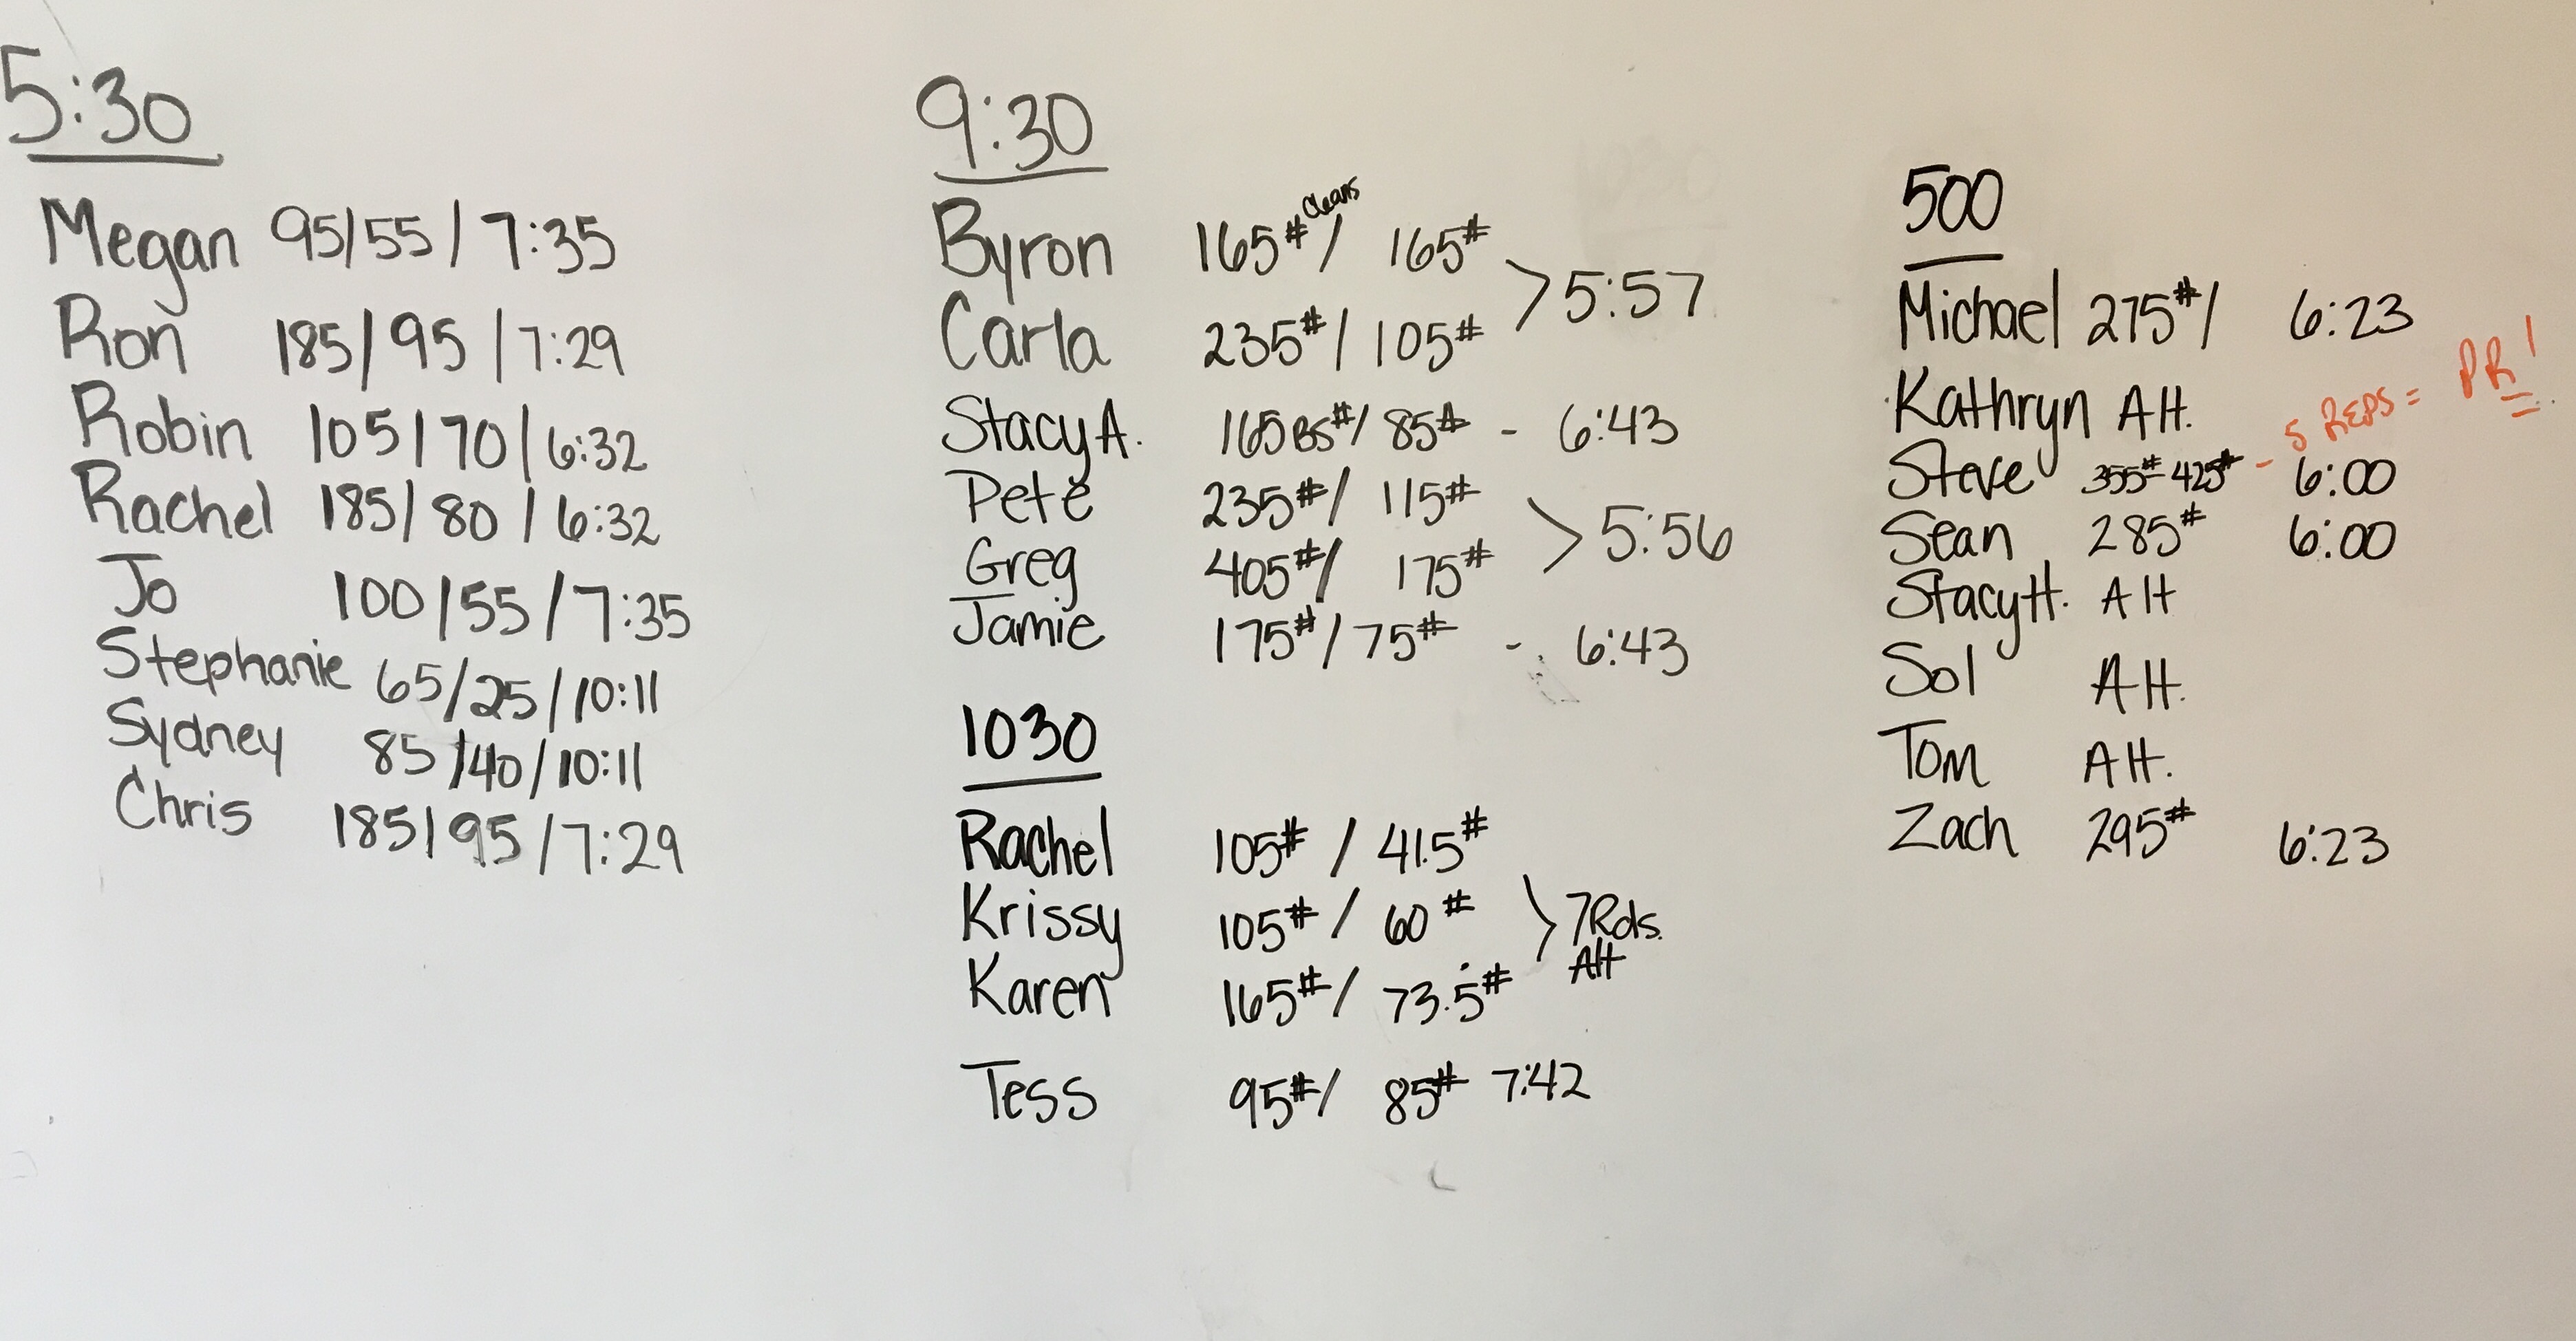 5:30
Megan 95/55/7:35
Ron 185/95/7:29
Robin 105/70/6:32
Rachel 185/80/6:32
Jo 100/55/7:35
Stephanie 65/25/10:11
Sydney 85/40/10:11
Chris 185/95/7:29
9:30
Byron 165# Cleans / 165#
Carla 235# / 105#
> 5:57
Stacy A. 165 BS# / 85# - 6:43
Pete 235# / 115#
Greg 405# / 175#
> 5:56
Jamie 175# / 75# - 6:43
1030
Rachel 105# / 41.5#
Krissy 105# / 60#
Karen 165# / 73.5#
> 7 Rds.
Alt
Tess 95# / 85# 7:42
500
Michael 275# / 6:23
Kathryn Alt.
Steve 355# 425# - 5 REPS = PR!
6:00
Sean 285# 6:00
Stacy H. Alt
Sol Alt.
Tom Alt.
Zach 295# 6:23